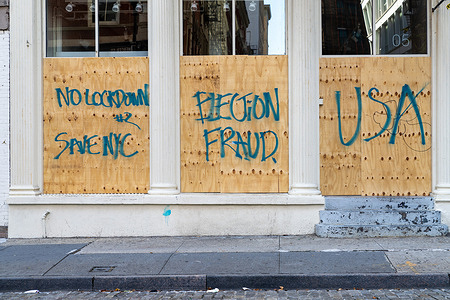 05
NO LOCKDOWN
#2
SAVE NYC
ELECTION
FRAUD
USA